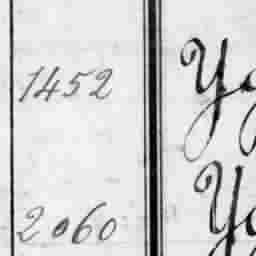 1452 Yo
2060 Yo